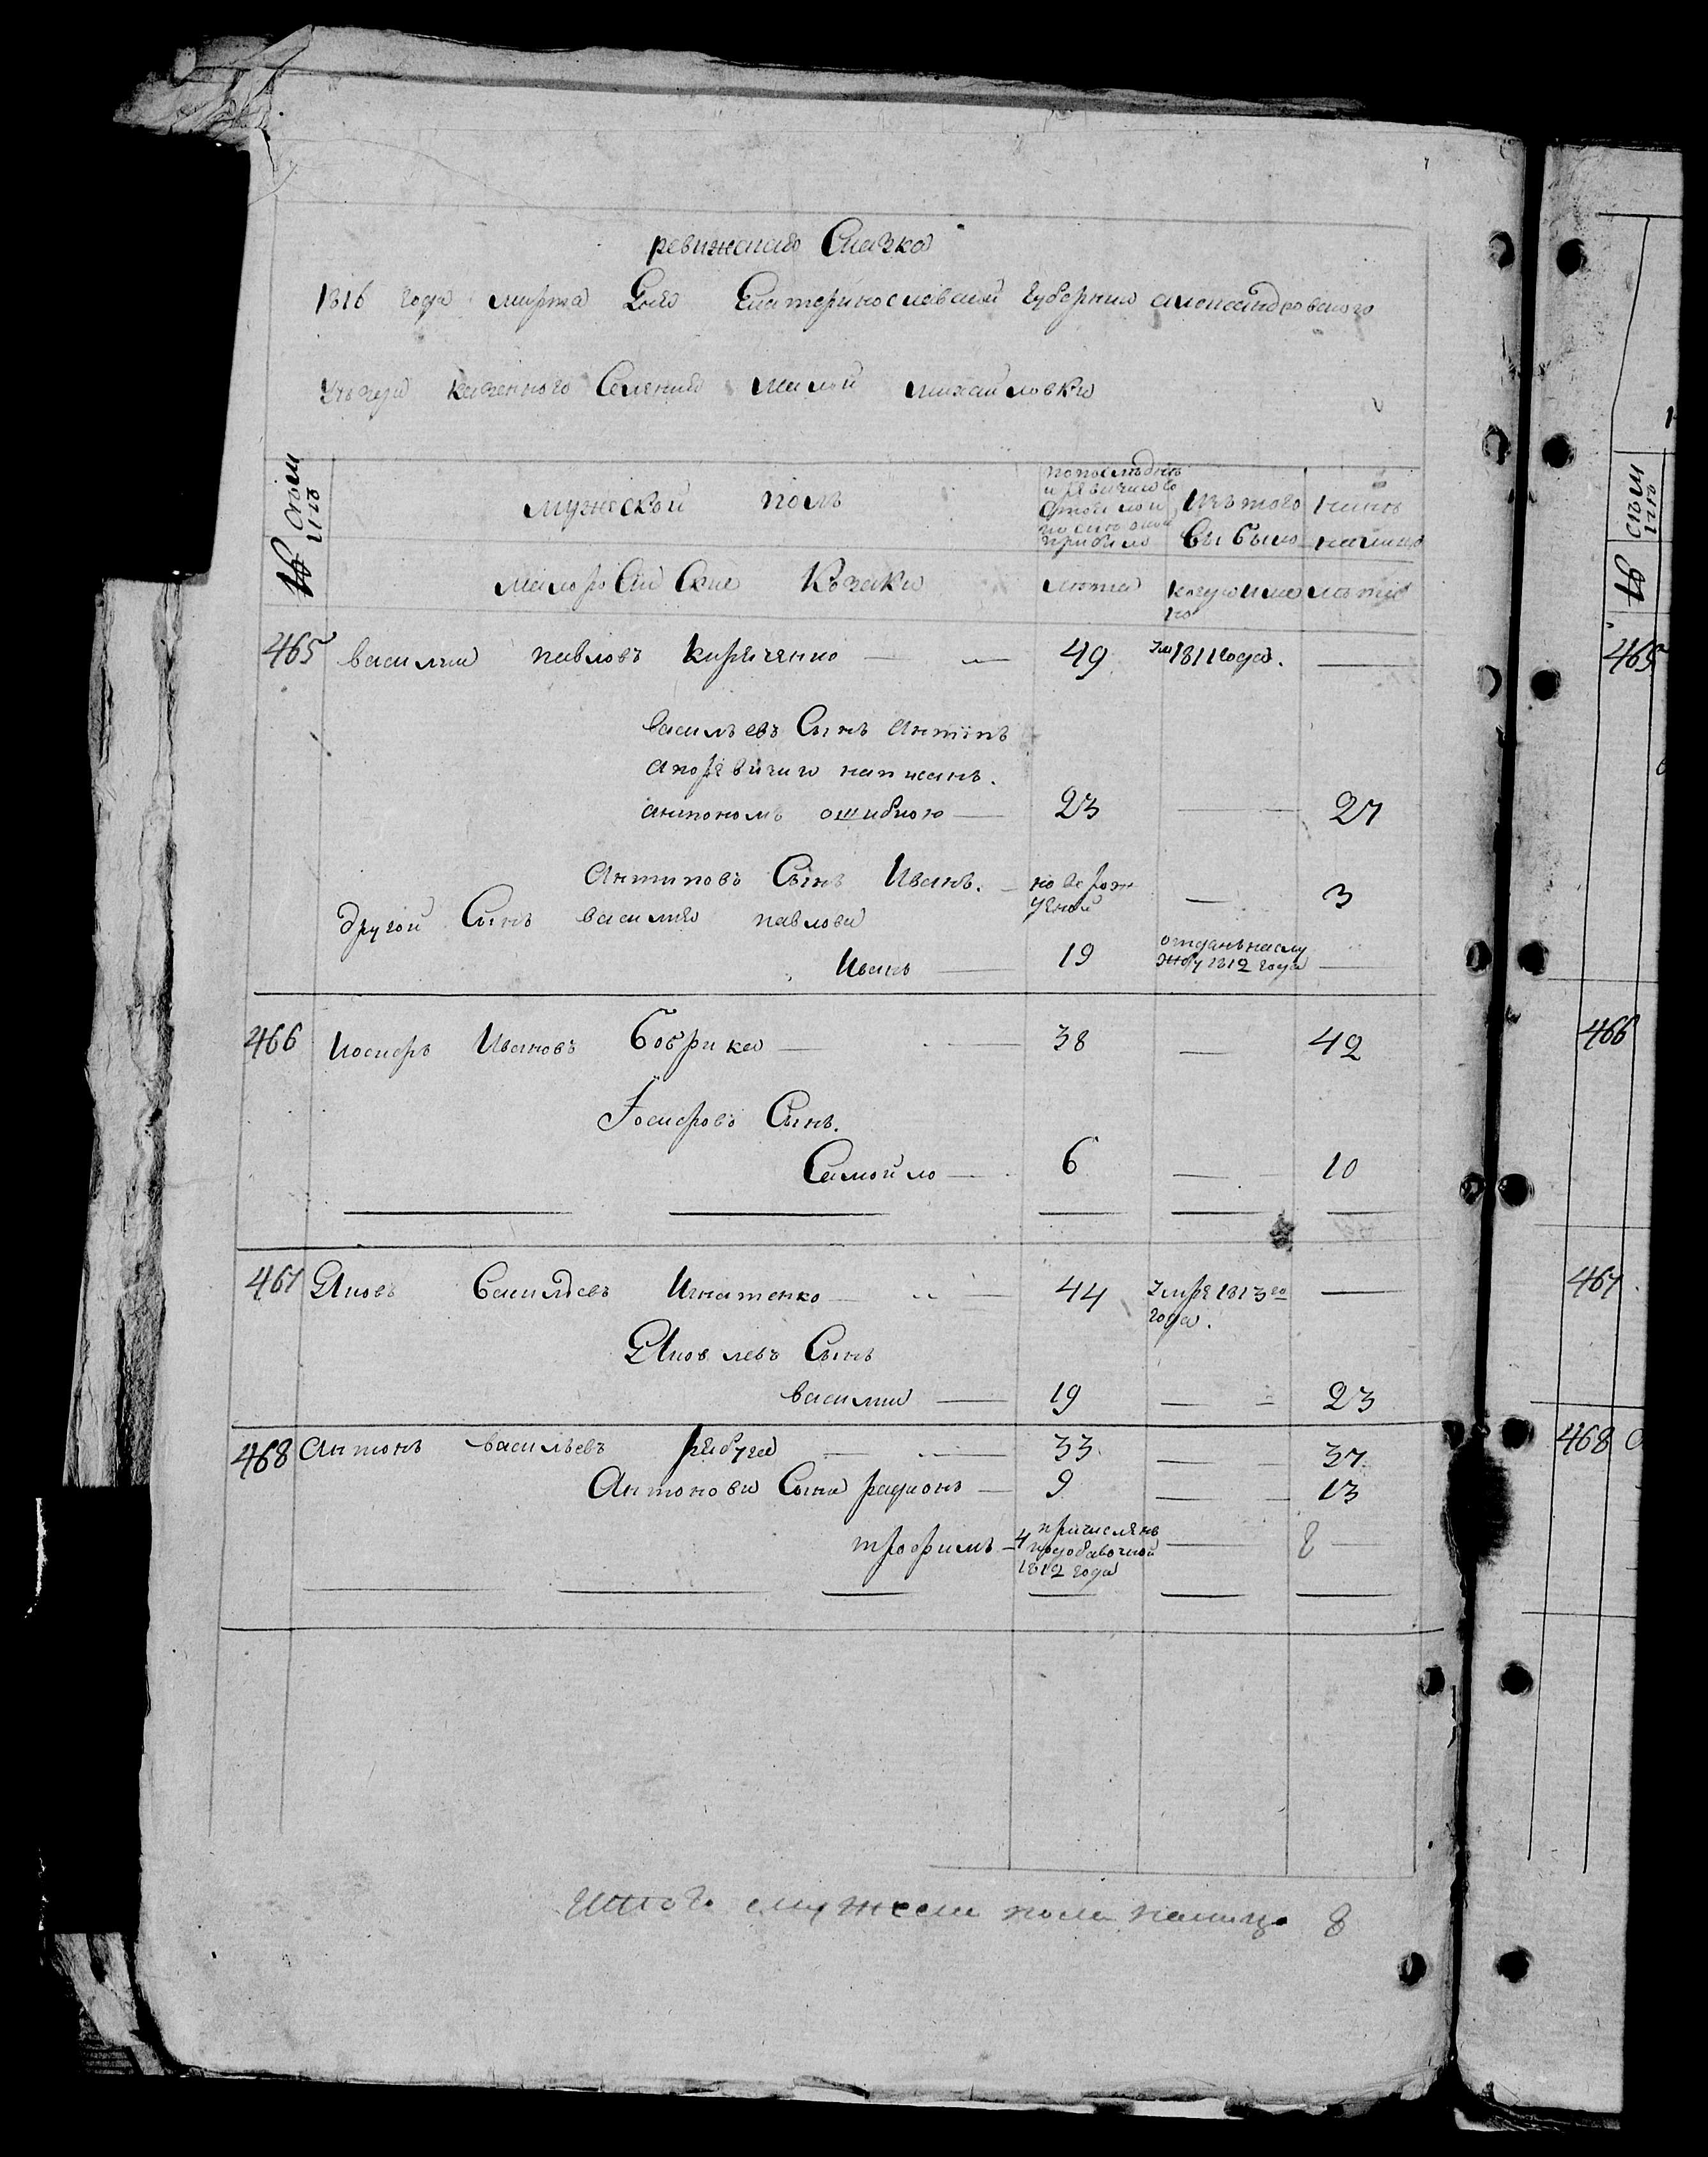 ревижская Сказка
1816 года марта Дня Екатеринославской губернии александровского
уезда казенного Селения малой михайловки
№ семьи
мужской полъ
по последней ревизии состояло и после оной прибыло
Изъ того выбыло
ныне налицо
малороСийСкие Козаки
лета
когда именно
лета
465 василий павловъ кириченко — 49 Ум 1811 года. —
васильевъ Сынъ антипъ
а по ревизии написанъ.
антономъ ошибкою — 23 — 27
антиповъ Сынъ Иванъ. — новорожденой — 3
другой Сынъ василия павлова
Иванъ — 19 отданъ на службу 1812 года —
466 Иосифъ Ивановъ бобрика — 38 — 42
Іосифовъ Сынъ.
Самойло — 6 — 10
467 Яковъ Васильевъ Игнатенко — 44 Умре 1813го года. —
Яковлевъ Сынъ
василий — 19 — 23
468 Антонъ васильевъ рябуха — 33 — 37
Антоновы Сыны радионъ — 9 — 13
трофимъ — 4 причисленъ по добавочной 1812 года — 8
Итого мужеска пола налицо 8
465
466
467
468